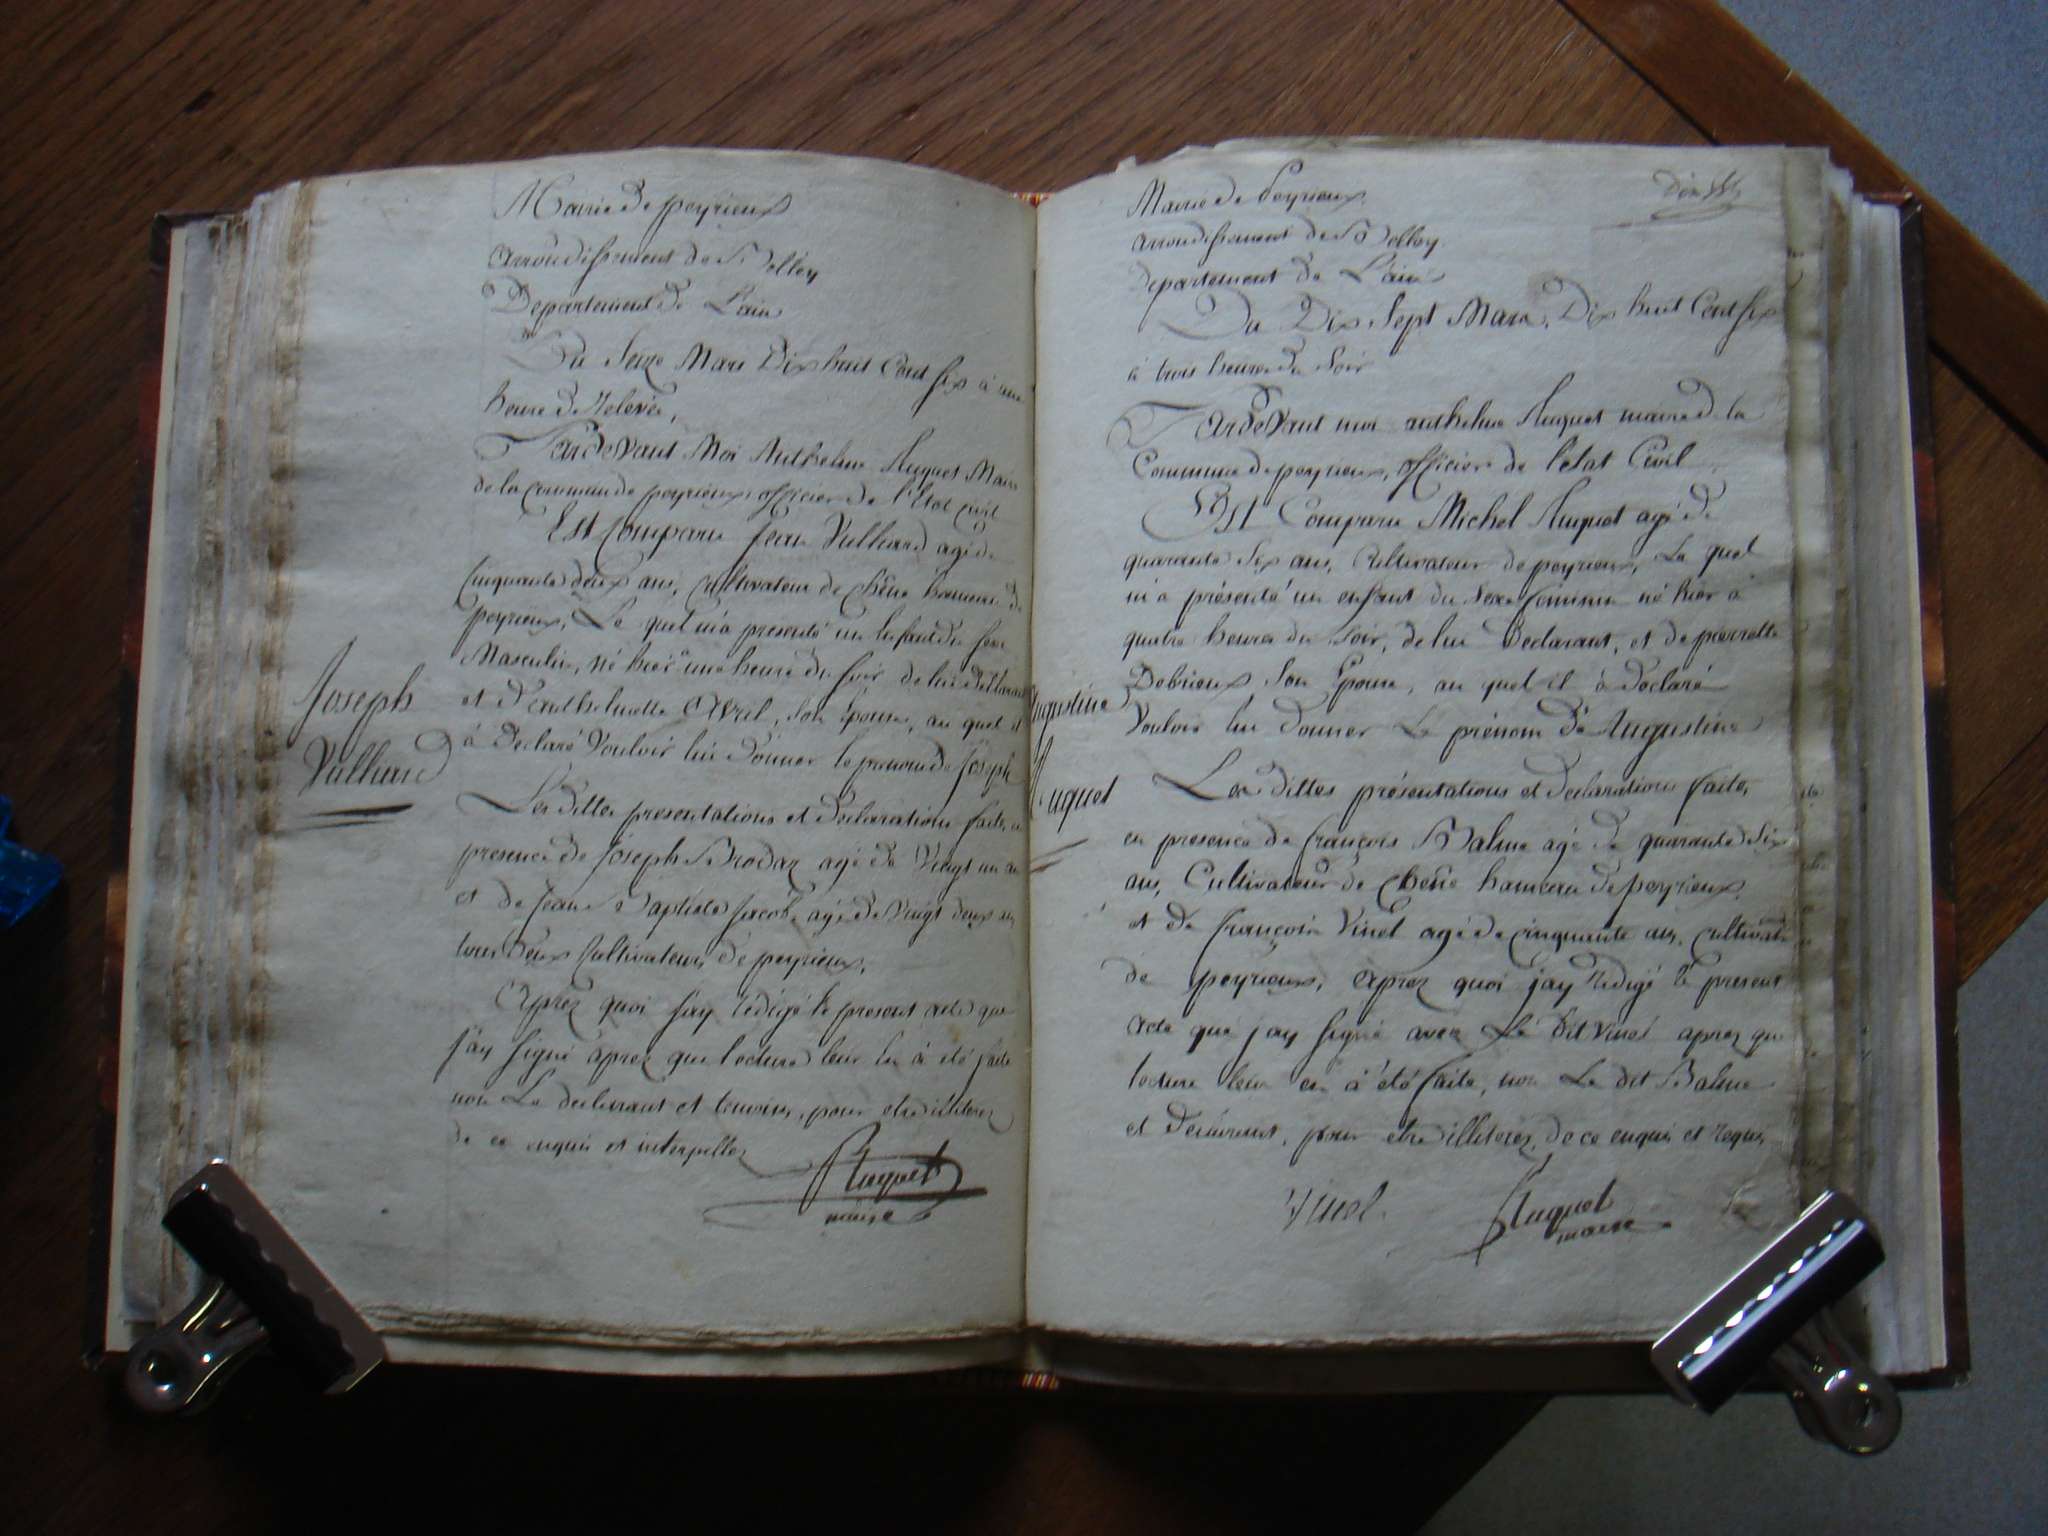 Mairie de peyrieux
arrondissement de Belley
Departement de L'ain
Du Seize Mars Dix huit Cent six à une
heure de relevée,
Pardevant Moi Anthelme Huguet Maire
de la commune de peyrieux officier de l'Etat civil
Est Comparu Jean Vulliard agé de
Cinquante deux ans, Cultivateur de Chêne hameau de
peyrieux, Le quel m'a presenté un Enfant du sexe
Masculin, né hier à une heure du soir de lui Déclarant
et d'anthelmette Avril, son Epouse, au quel il
à Declaré Vouloir lui donner le prenom de Joseph
Joseph
Vulliard
Les dittes presentations et Declaration faite en
presence de Joseph Brodaz agé de Vingt un an
et de Jean Baptiste Jacob, agé de Vingt deux ans
tous deux Cultivateurs de peyrieux,
Aprez quoi j'ay rédigé le present acte que
j'ay signé aprez que lecture leur en à été faite
non Le declarant et temoins, pour etre illiterez
de ce enquis et interpellez
Huguet
maire
Mairie de Peyrieux
arrondissement de Belley
departement de L'ain
Du Dix Sept Mars, Dix huit Cent six
à trois heures du soir
Pardevant moi anthelme Huguet maire de la
Commune de peyrieux, officier de l'etat Civil
Est Comparu Michel Huguet agé de
quarante six ans, Cultivateur de peyrieux, Le quel
m'a présenté un enfant du sexe féminin né hier à
quatre heures du soir, de lui Declarant, et de pierrette
Debrieux son Epouse, au quel il à déclaré
Vouloir lui donner Le prénom de Augustine
Augustine
Huguet
Les dittes présentations et declarations faite,
en presence de françois Balme agé de quarante six
ans, Cultivateur de Chêne hameau de peyrieux,
et de françois Vinet agé de cinquante ans, cultivateur
de peyrieux, aprez quoi j'ay redigé le present
acte que j'ay signé avec Le dit Vinet aprez que
lecture leur en à été faite, non Le dit Balme
et Déclarant, pour etre illiterez, de ce enquis et requis,
Vinet
Huguet
maire